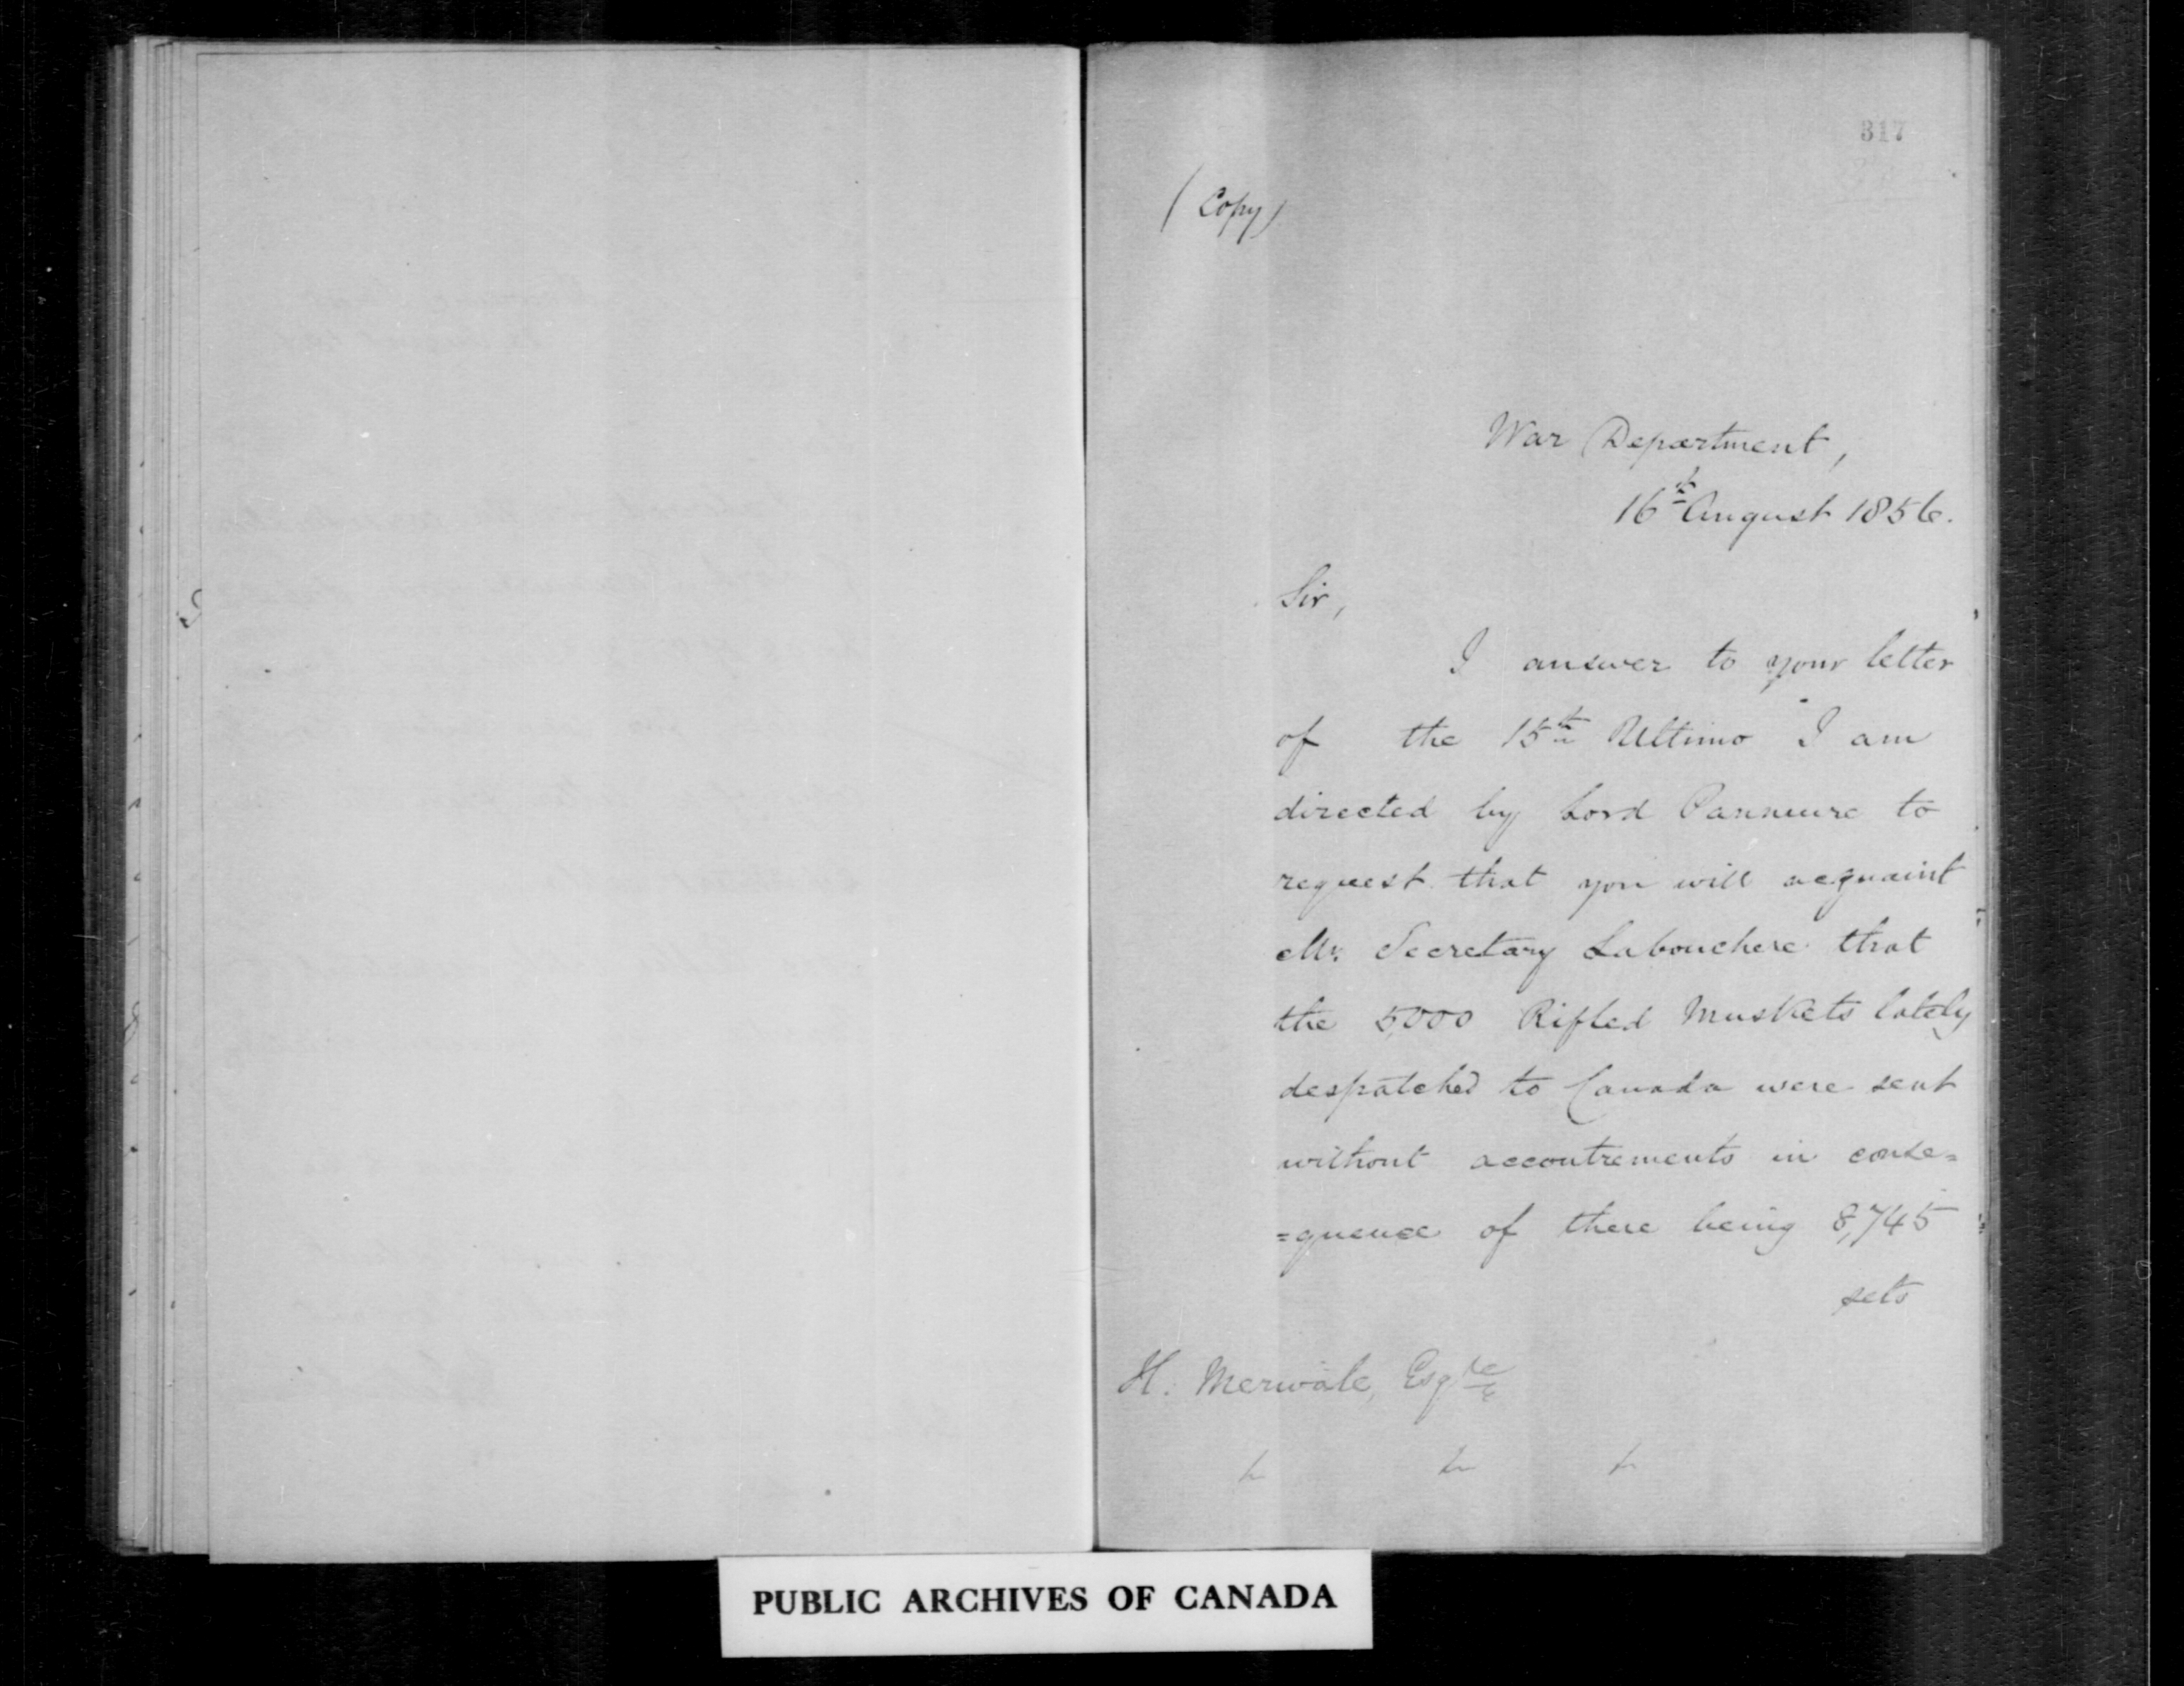 317
(Copy)
War Department,
16th August 1856.
Sir,
I answer to your letter
of the 15th Ultimo I am
directed by Lord Panmure to
request that you will acquaint
Mr. Secretary Labouchere that
the 5,000 Rifled Muskets lately
despatched to Canada were sent
without accoutrements in conse=
=quence of there being 8,745
sets
H. Merivale, Esqre
PUBLIC ARCHIVES OF CANADA